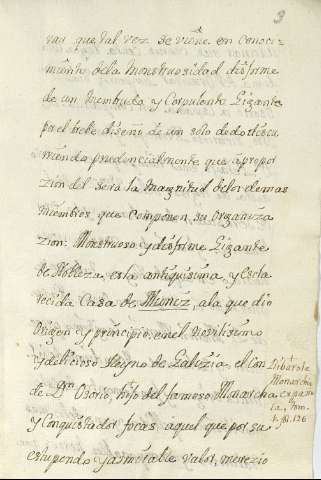 3
ran que tal vez se viene en conoci-
miento dela Monstruosidad disforme
de un membrudo y Corpulento Gigante
por el debil diseño de un solo dedo discu-
rriendo prudencialmente que à propor
zion del serà la magnitud delos demas
miembros que componen su organiza
zion: Monstruoso y disforme Gigante
de Nobleza, es la antiquisima, y escla
recida Casa de Muñiz, ala que dio
Origen y principio, en el nobilisimo
y delicioso Reyno de Galizia, el Con
de Dn Osorio, hijo del famoso Monarcha
y Conquistador focas, aquel que por su
estupendo y admirable valor, merezio
Monarchia